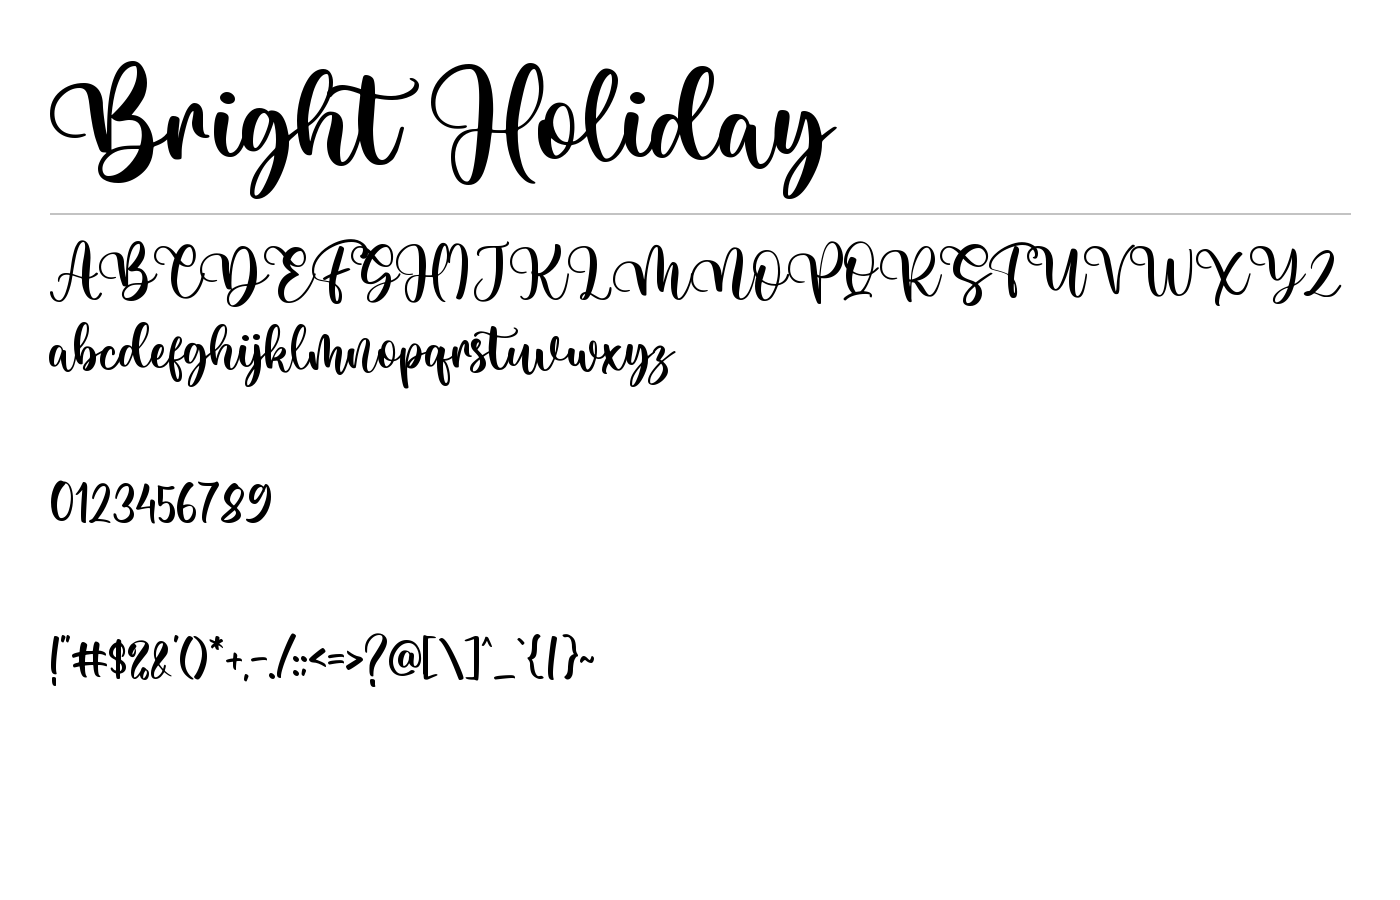 Bright Holiday
ABCDEFGHIJKLMNOPQRSTUVWXYZ
abcdefghijklmnopqrstuvwxyz
0123456789
!"#$%&'()*+,-./:;<=>?@[\]^_`{|}~